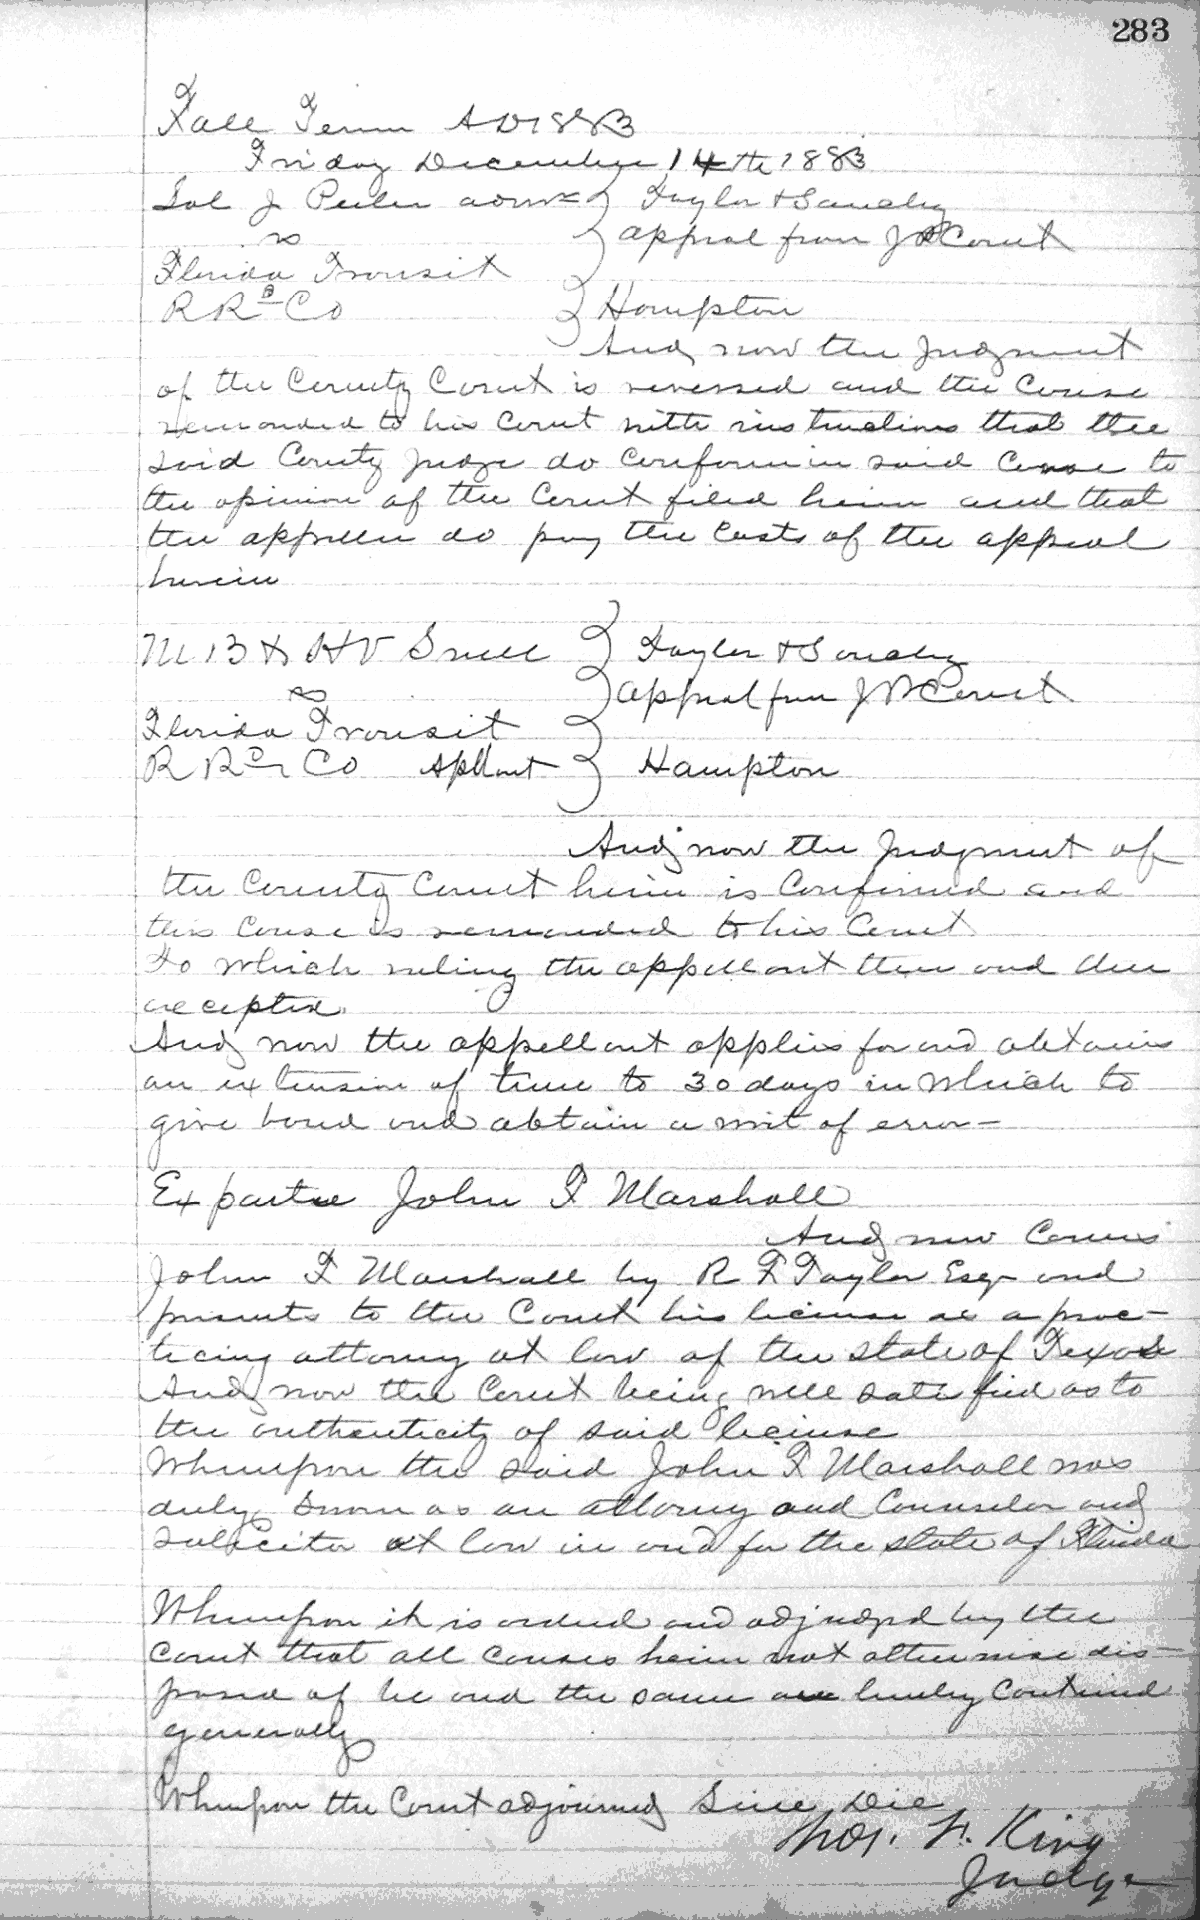 283
Fall Term AD 1883
Friday December 14th 1883
Sol J Peeler admx } Taylor & Sanchez
vs } appeal from J P Court
Florida Transit
R R Co } Hampton
And now the Judgment
of the County Court is reversed and the Cause
remanded to his Court with instructions that the
said County Judge do conform in said Cause to
the opinion of the Court filed herein and that
the appellee do pay the Costs of the appeal
herein
M B & H V Snell } Taylor & Sanchez
vs } appeal from J P Court
Florida Transit
R R Co Apllant } Hampton
And now the Judgment of
the County Court herein is Confirmed and
this Cause is remanded to his Court
To which ruling the appellant then and there
excepted
And now the appellant applies for and obtains
an extension of time to 30 days in which to
give bond and obtain a writ of error -
Ex partee John F Marshall
And now Comes
John F Marshall by R F Taylor Esqr and
presents to the Court his license as a prac-
ticing attorney at law of the state of Texas
And now the Court being well satisfied as to
the authenticity of said license
Whereupon the said John F Marshall was
duly sworn as an attorney and Counselor and
solicitor at law in and for the state of Florida
Whereupon it is ordered and adjudged by the
Court that all causes herein not otherwise dis-
posed of be and the same are hereby Continued
generally
Whereupon the Court adjourned Sine Die
Thos. F. King
Judge